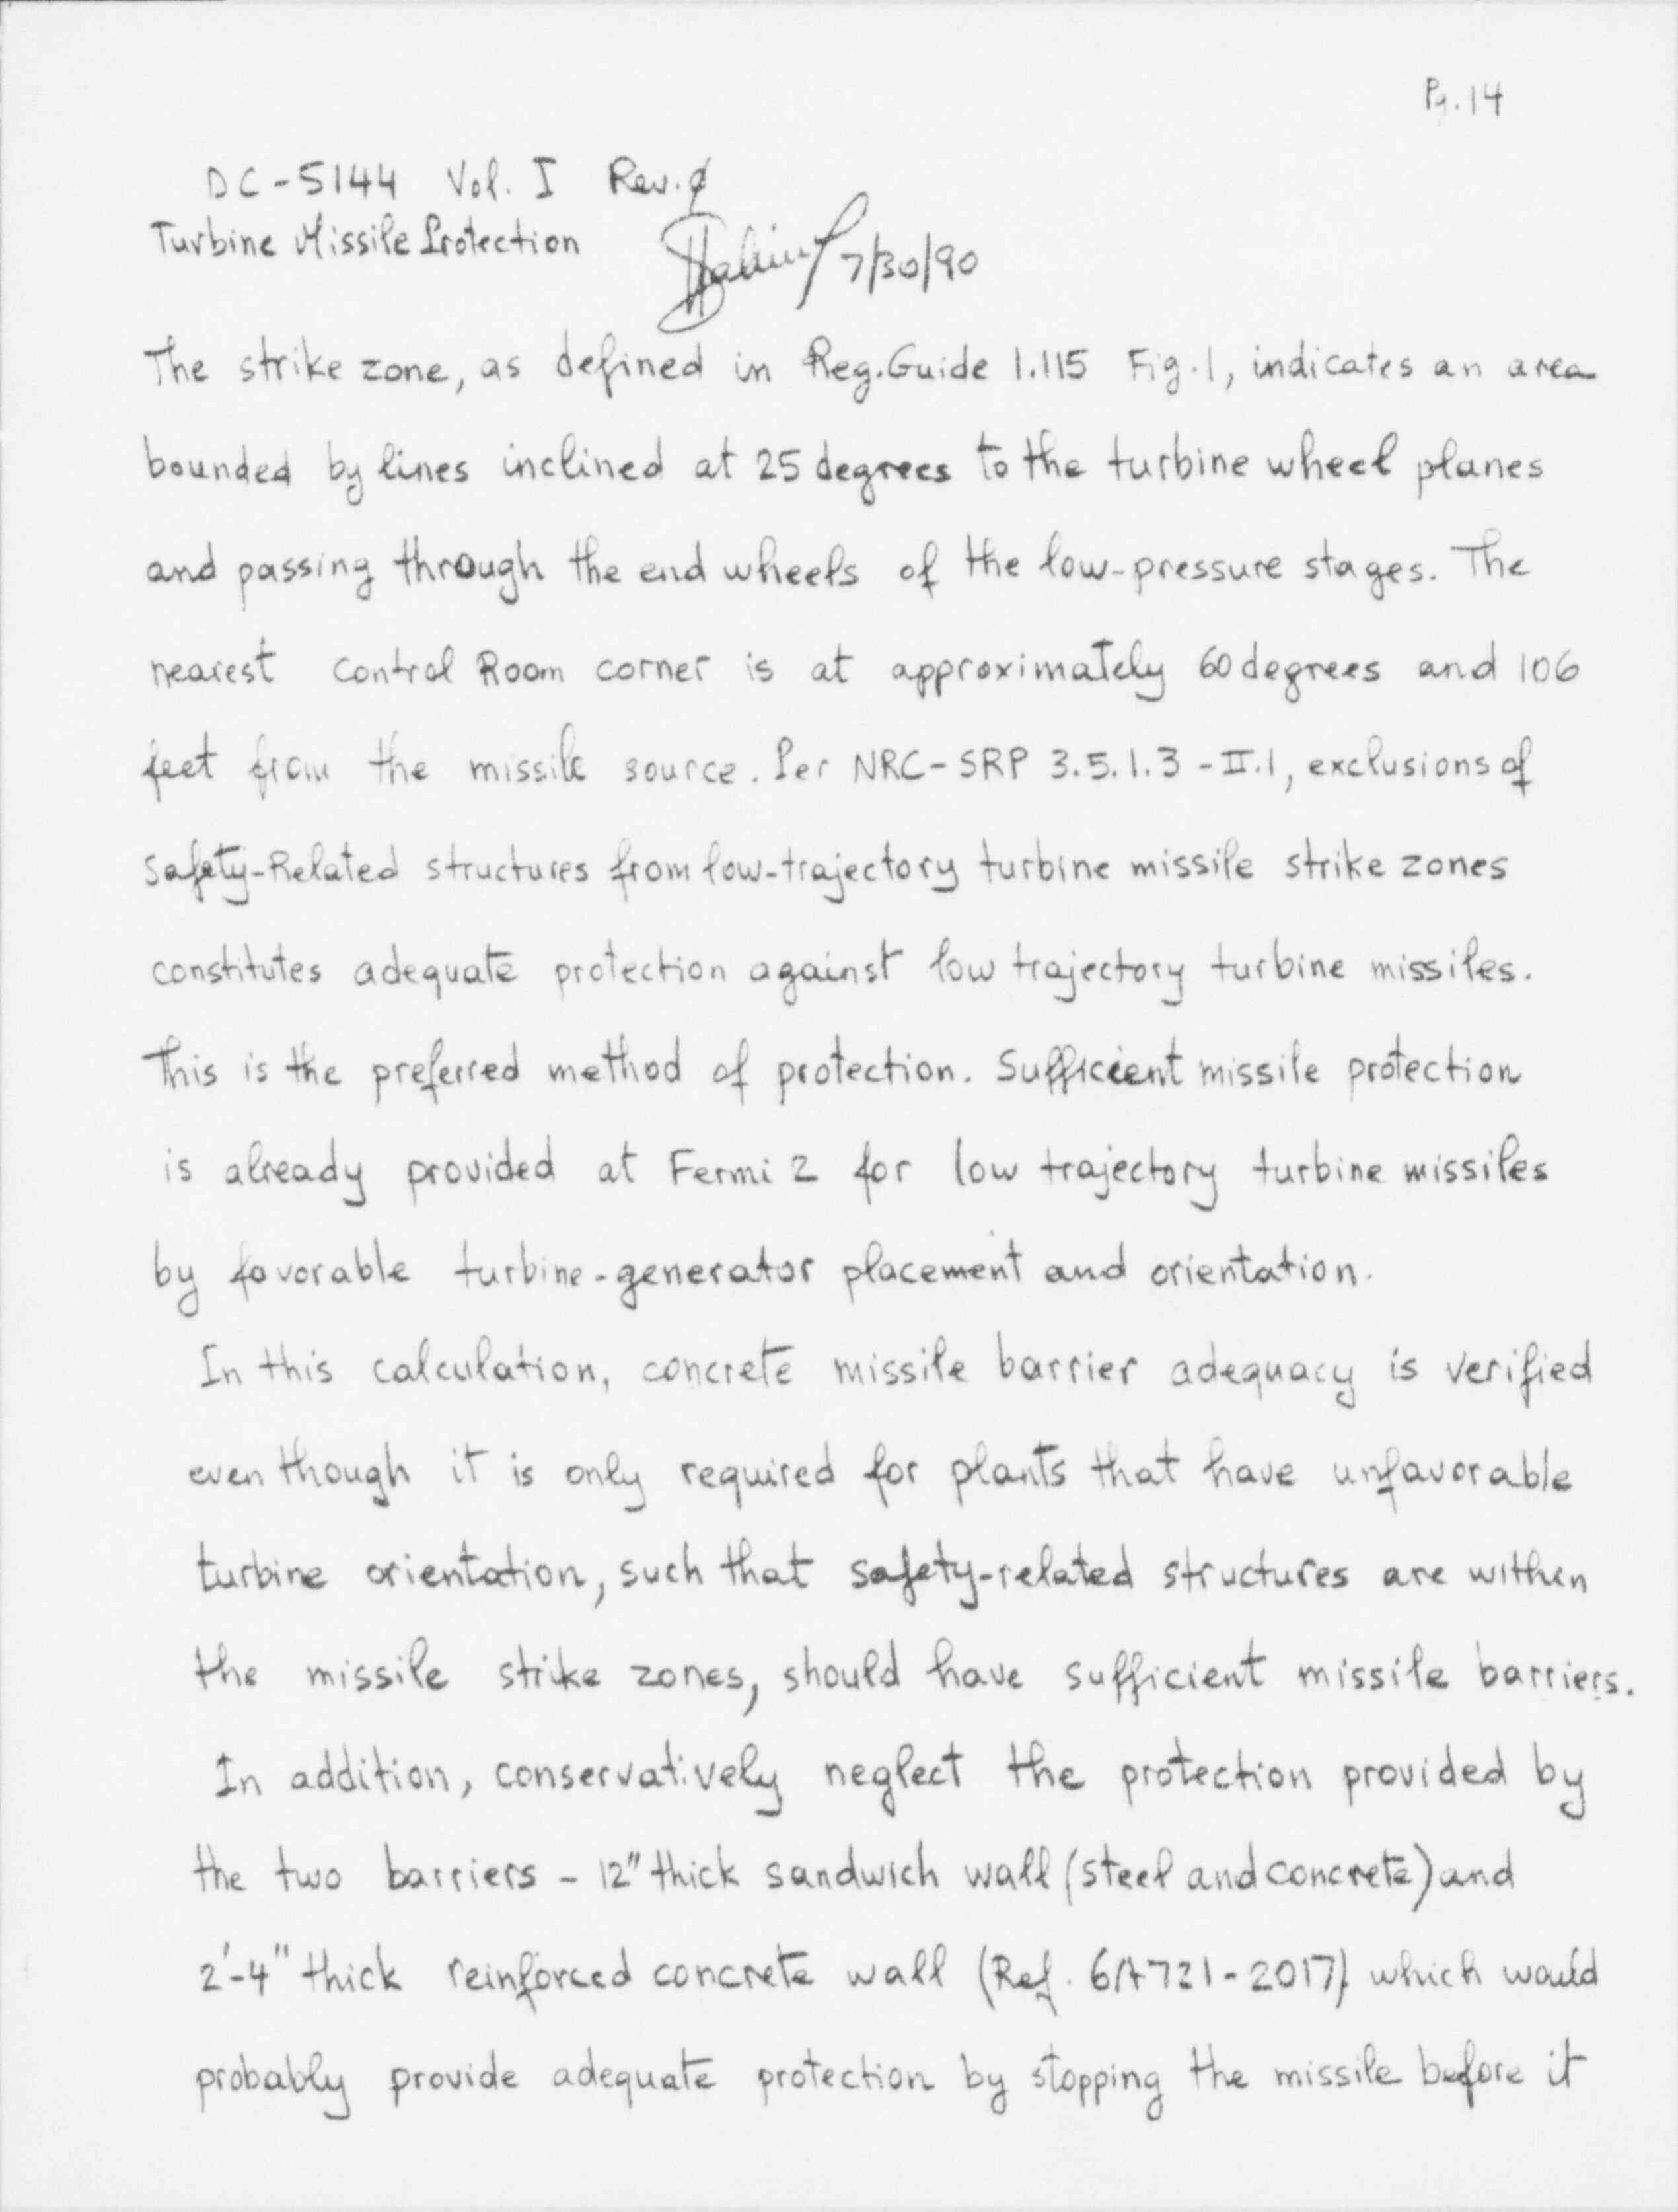 Pg. 14
DC-5144 Vol. I Rev. φ
Turbine Missile Protection
7/30/90
The strike zone, as defined in Reg. Guide 1.115 Fig. 1, indicates an area
bounded by lines inclined at 25 degrees to the turbine wheel planes
and passing through the end wheels of the low-pressure stages. The
nearest Control Room corner is at approximately 60 degrees and 106
feet from the missile source. Per NRC-SRP 3.5.1.3 - II.1, exclusions of
Safety-Related structures from low-trajectory turbine missile strike zones
constitutes adequate protection against low trajectory turbine missiles.
This is the preferred method of protection. Sufficient missile protection
is already provided at Fermi 2 for low trajectory turbine missiles
by favorable turbine-generator placement and orientation.
In this calculation, concrete missile barrier adequacy is verified
even though it is only required for plants that have unfavorable
turbine orientation, such that safety-related structures are within
the missile strike zones, should have sufficient missile barriers.
In addition, conservatively neglect the protection provided by
the two barriers - 12" thick sandwich wall (steel and concrete) and
2'-4" thick reinforced concrete wall (Ref. 6A721-2017) which would
probably provide adequate protection by stopping the missile before it